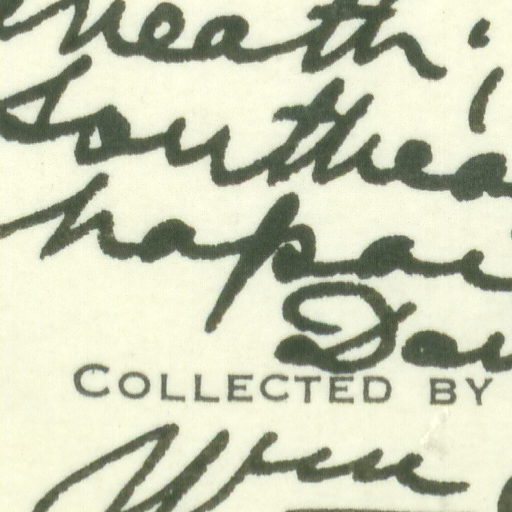 neath;
Southea
hapar
Dav
COLLECTED BY
Wm